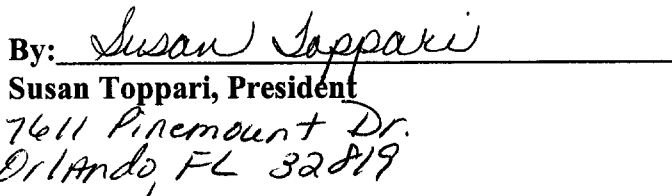 By: Susan Toppari
Susan Toppari, President
7611 Pinemount Dr.
Orlando, FL 32819